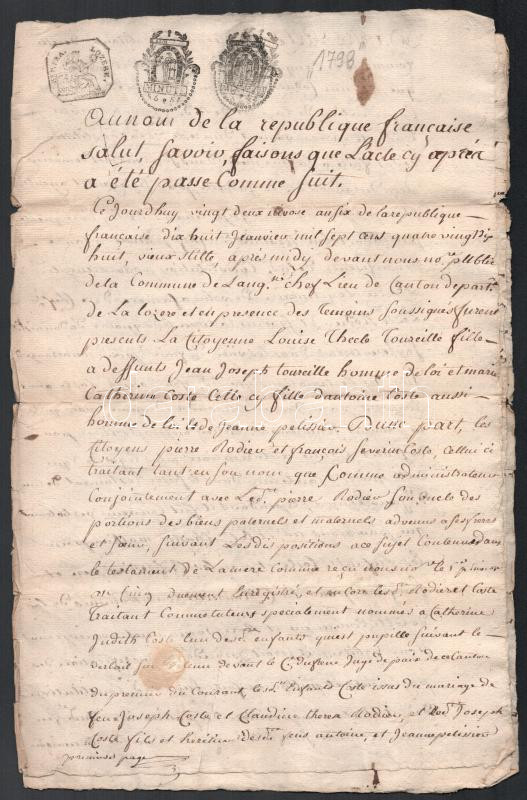 LOZERE.
MINUTE
1798
Au nom de la republique francaise
salut, savoir, faisons que L'acte cy après
a été passé Comme suit.
Ce Jourdhuy vingt deux nivose an six de la republique
francaise dix huit Jeanvier mil sept cens quatre vingt dix
huit, vieux stille, apres midy, devant nous no.re public
de la Commune de Lang.ne chef Lieu de Canton departt
de La lozere et en presence des Temoins soussignés furent
presents La Citoyenne Louise Thecle Toureille fille
a deffunts Jean Joseph toureille homme de loi et marie
Catherine Coste Celle cy fille d'antoine Coste aussi
homme de loi et de Jeanne pelissier D'une part, les
Citoyens pierre Rodier et françois severin Coste, Celui ci
traitant tant en son nom, que Comme administrateur
Conjointement avec Led. pierre Rodier son oncle des
portions des biens paternels et maternels advenus a ses freres
et sœur, suivant Les dispositions a ce sujet Contenues dans
le testament de La mere Comme reçu
an Cinq duement Enregistré, et encore les d. Rodier et Coste
Traitant Comme tuteurs specialement nommés a Catherine
Judith Coste l'un des d. enfants qui est pupille suivant le
verbail sur tenu devant le C. dufrene Juge de paix de ce Canton
du premier du Courant, les d. Enfants Coste issus du mariage de
feu Joseph Coste et Claudine theresе Rodier, et led. Joseph
Coste fils et heritier des d. feus antoine, et Jeanne pelissier
premiere page